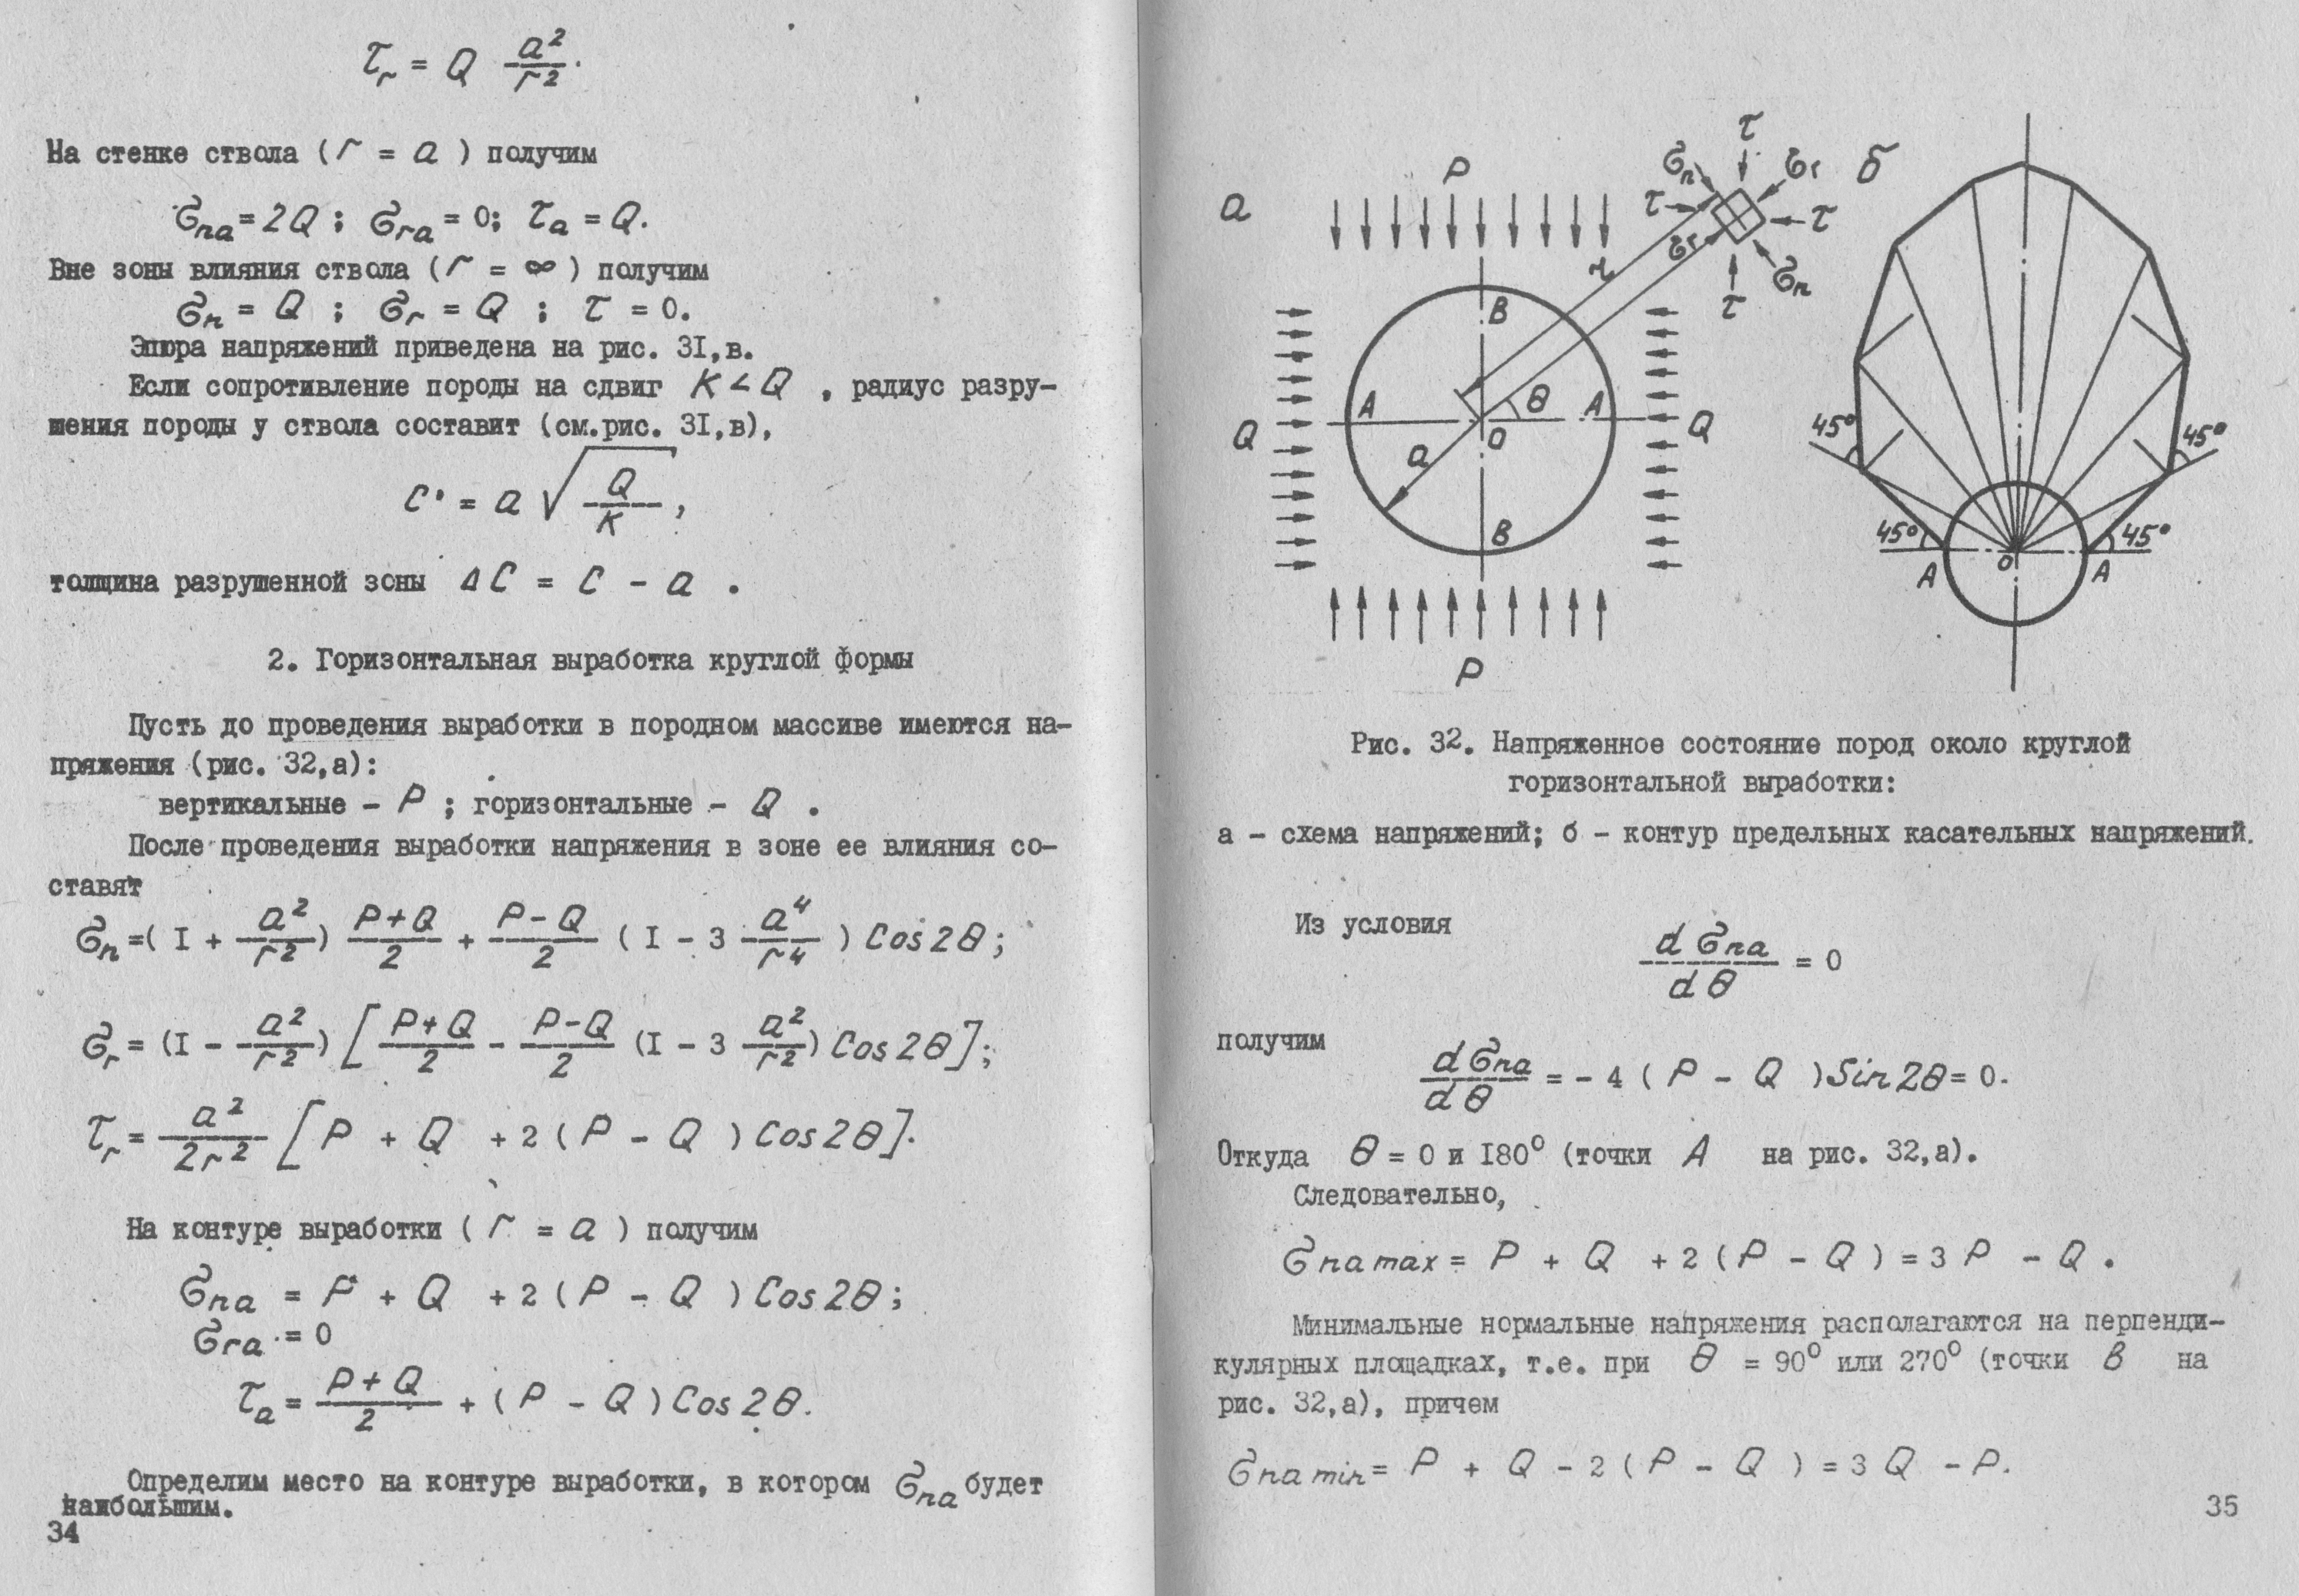 τr = Q a²/r².
На стенке ствола (r = a) получим
σna = 2Q; σra = 0; τa = Q.
Вне зоны влияния ствола (r = ∞) получим
σn = Q; σr = Q; τ = 0.
Эпюра напряжений приведена на рис. 3I,в.
Если сопротивление породы на сдвиг K < Q, радиус разру-
шения породы у ствола составит (см.рис. 3I,в),
C = a √(Q/K),
толщина разрушенной зоны ΔC = C - a.
2. Горизонтальная выработка круглой формы
Пусть до проведения выработки в породном массиве имеются на-
пряжения (рис. 32,а):
вертикальные - P; горизонтальные - Q.
После проведения выработки напряжения в зоне ее влияния со-
ставят
σn = (I + a²/r²) (P+Q)/2 + (P-Q)/2 (I - 3 a⁴/r⁴) Cos2θ;
σr = (I - a²/r²) [(P+Q)/2 - (P-Q)/2 (I - 3 a²/r²) Cos2θ];
τr = a²/2r² [P + Q + 2(P - Q) Cos2θ].
На контуре выработки (r = a) получим
σna = P + Q + 2(P - Q) Cos2θ;
σra = 0
τa = (P+Q)/2 + (P - Q) Cos2θ.
Определим место на контуре выработки, в котором σna будет
наибольшим.
34
а
P
σn
τ
σr
τ
τ
σn
τ
r
σr
B
A
θ
A
O
a
Q
Q
B
P
б
45°
45°
45°
45°
O
A
A
Рис. 32. Напряженное состояние пород около круглой
горизонтальной выработки:
а - схема напряжений; б - контур предельных касательных напряжений.
Из условия
dσna/dθ = 0
получим
dσna/dθ = - 4 (P - Q) Sin2θ = 0.
Откуда θ = 0 и I80° (точки A на рис. 32,а).
Следовательно,
σna max = P + Q + 2(P - Q) = 3P - Q.
Минимальные нормальные напряжения располагаются на перпенди-
кулярных площадках, т.е. при θ = 90° или 270° (точки B на
рис. 32,а), причем
σna min = P + Q - 2(P - Q) = 3Q - P.
35